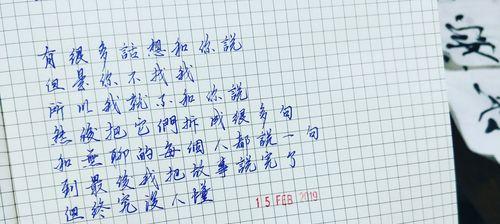 有很多話想和你說
但是你不找我
所以我就不和你說
然後把它們拆成很多句
和無聊的每個人都說一句
到最後我把故事說完了
但終究沒人懂
15 FEB 2019